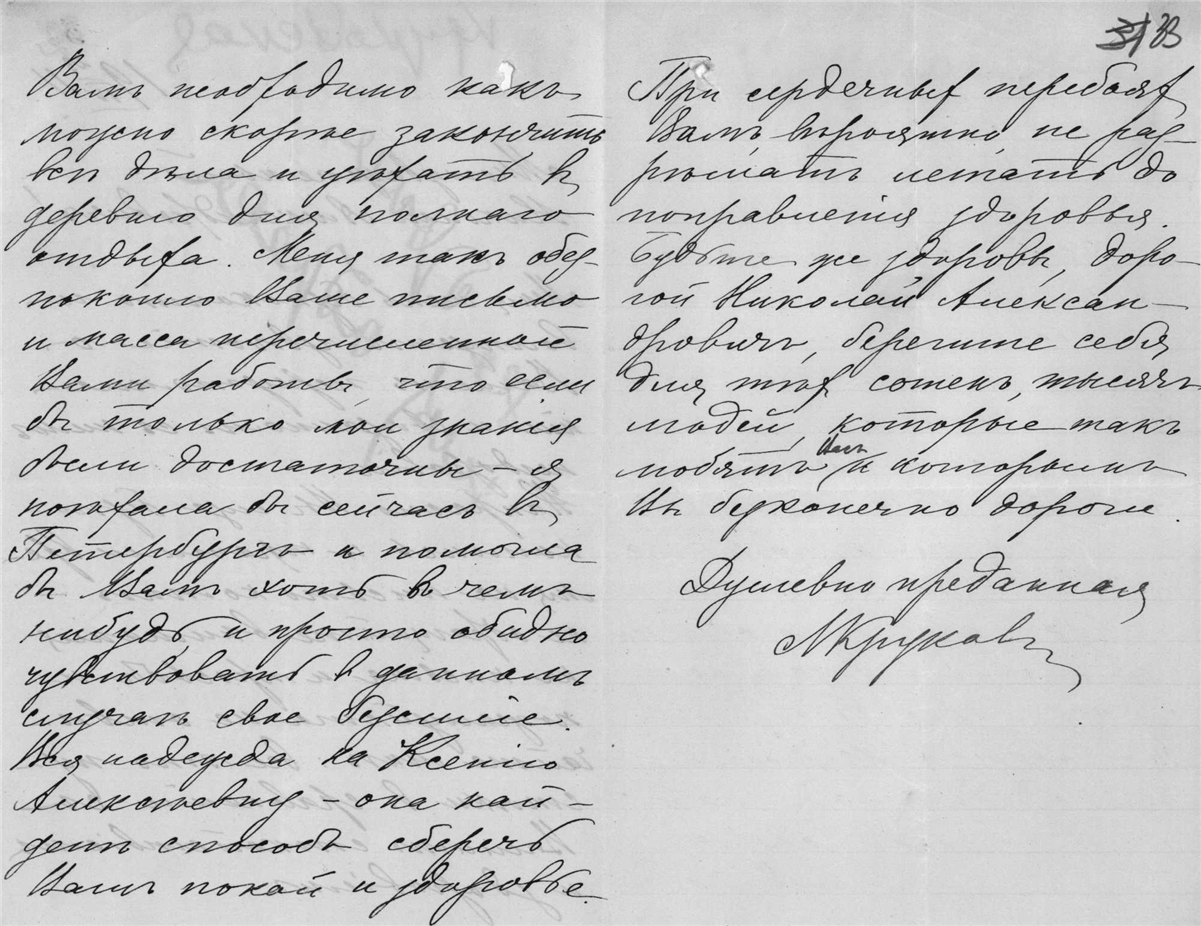 33
Вамъ необходимо какъ
можно скорѣе закончить
всѣ дѣла и уѣхать въ
деревню для полнаго
отдыха. Меня такъ обез-
покоило Ваше письмо
и масса перечисленной
Вами работы, что если
бы только мои знанія
были достаточны – я
поѣхала бы сейчасъ въ
Петербургъ и помогла
бы Вамъ хоть въ чемъ
нибудь и просто обидно
чувствовать въ данномъ
случаѣ свое безсиліе.
Вся надежда на Ксенію
Алексѣевну – она най-
детъ способъ сберечь
Вамъ покой и здоровье.
При сердечныхъ перебояхъ
Вамъ, вѣроятно, не раз-
рѣшатъ летать до
поправленія здоровья.
Будьте же здоровы, доро-
гой Николай Алексан-
дровичъ, берегите себя
для тѣхъ сотенъ, тысячъ
людей, которые такъ
любятъ Васъ и которымъ
Вы безконечно дороги.
Душевно преданная